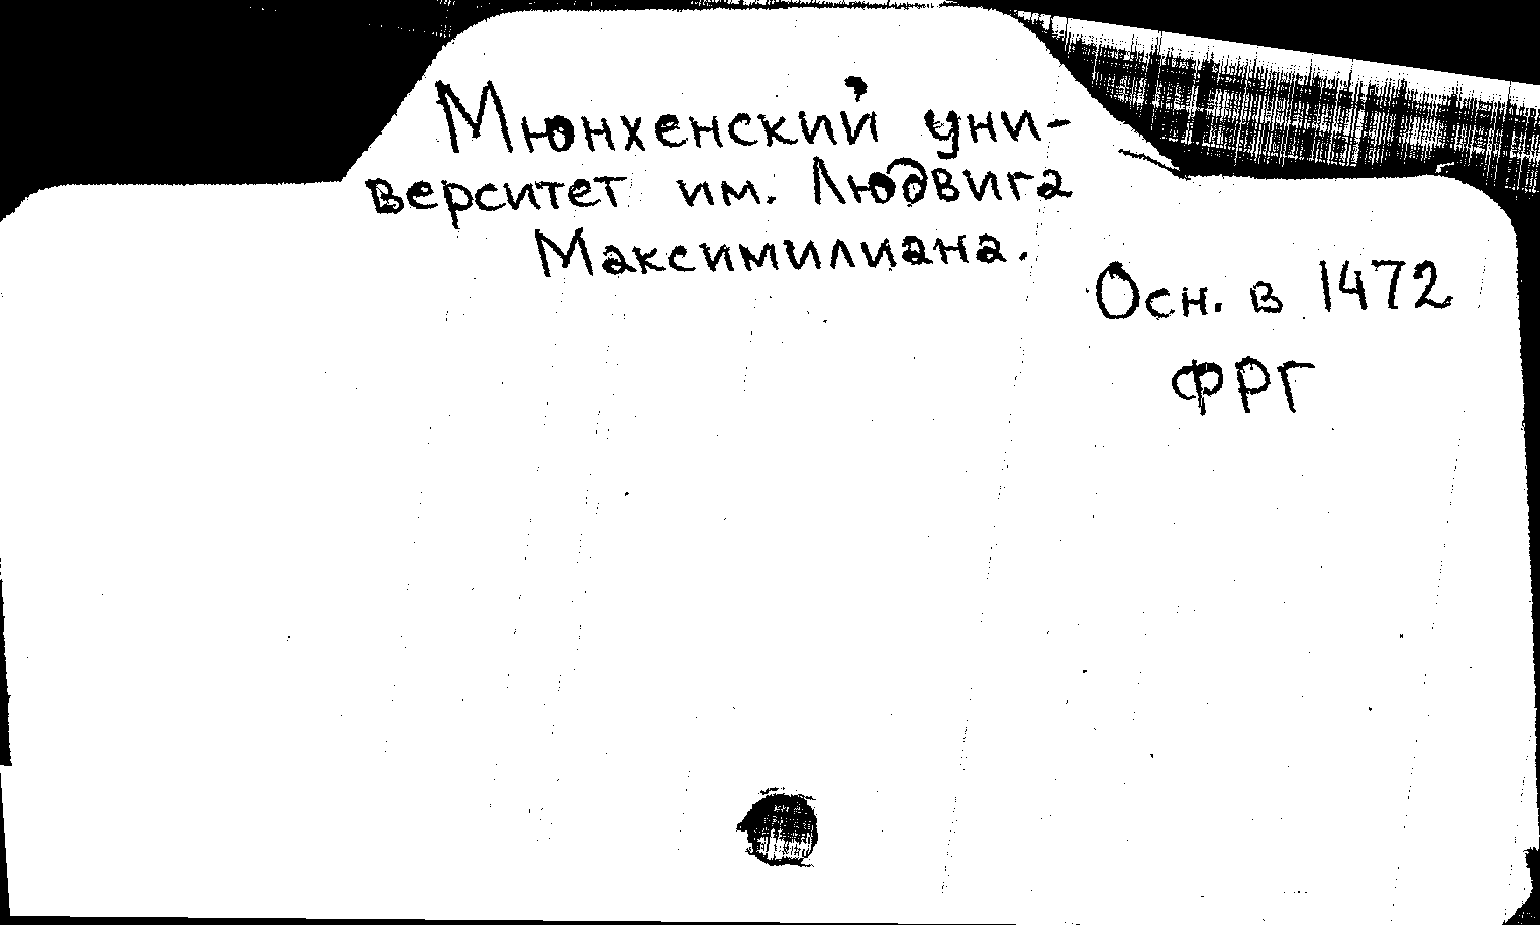 Мюнхенский уни-
верситет им. Людвига
Максимилиана.
Осн. в 1472
ФРГ